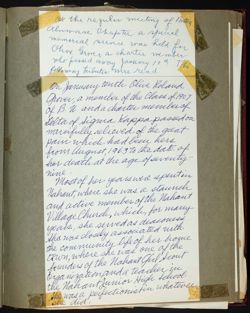 At the regular meeting of
Alumnae Chapter a special
memorial service was held for
Olive Grover, a charter member
who passed away January 10th. The
following tributes were read
On January tenth Olive Roland
Grover, a member of the Class of 1907
of B U and a charter member of
Delta of Sigma Kappa passed on
mercifully relieved of the great
pain which had been hers
from August, 1963 to the date of
her death at the age of seventy-
nine.
Most of her years were spent in
Nahant where she was a staunch
and active member of the Nahant
Village Church, which, for many
years, she served as deaconess.
She was closely associated with
the community life of her home
town, where she was one of the
founders of the Nahant Girl Scout
organization and a teacher in
the Nahant Junior High School
She was a perfectionist in whatever
she did.